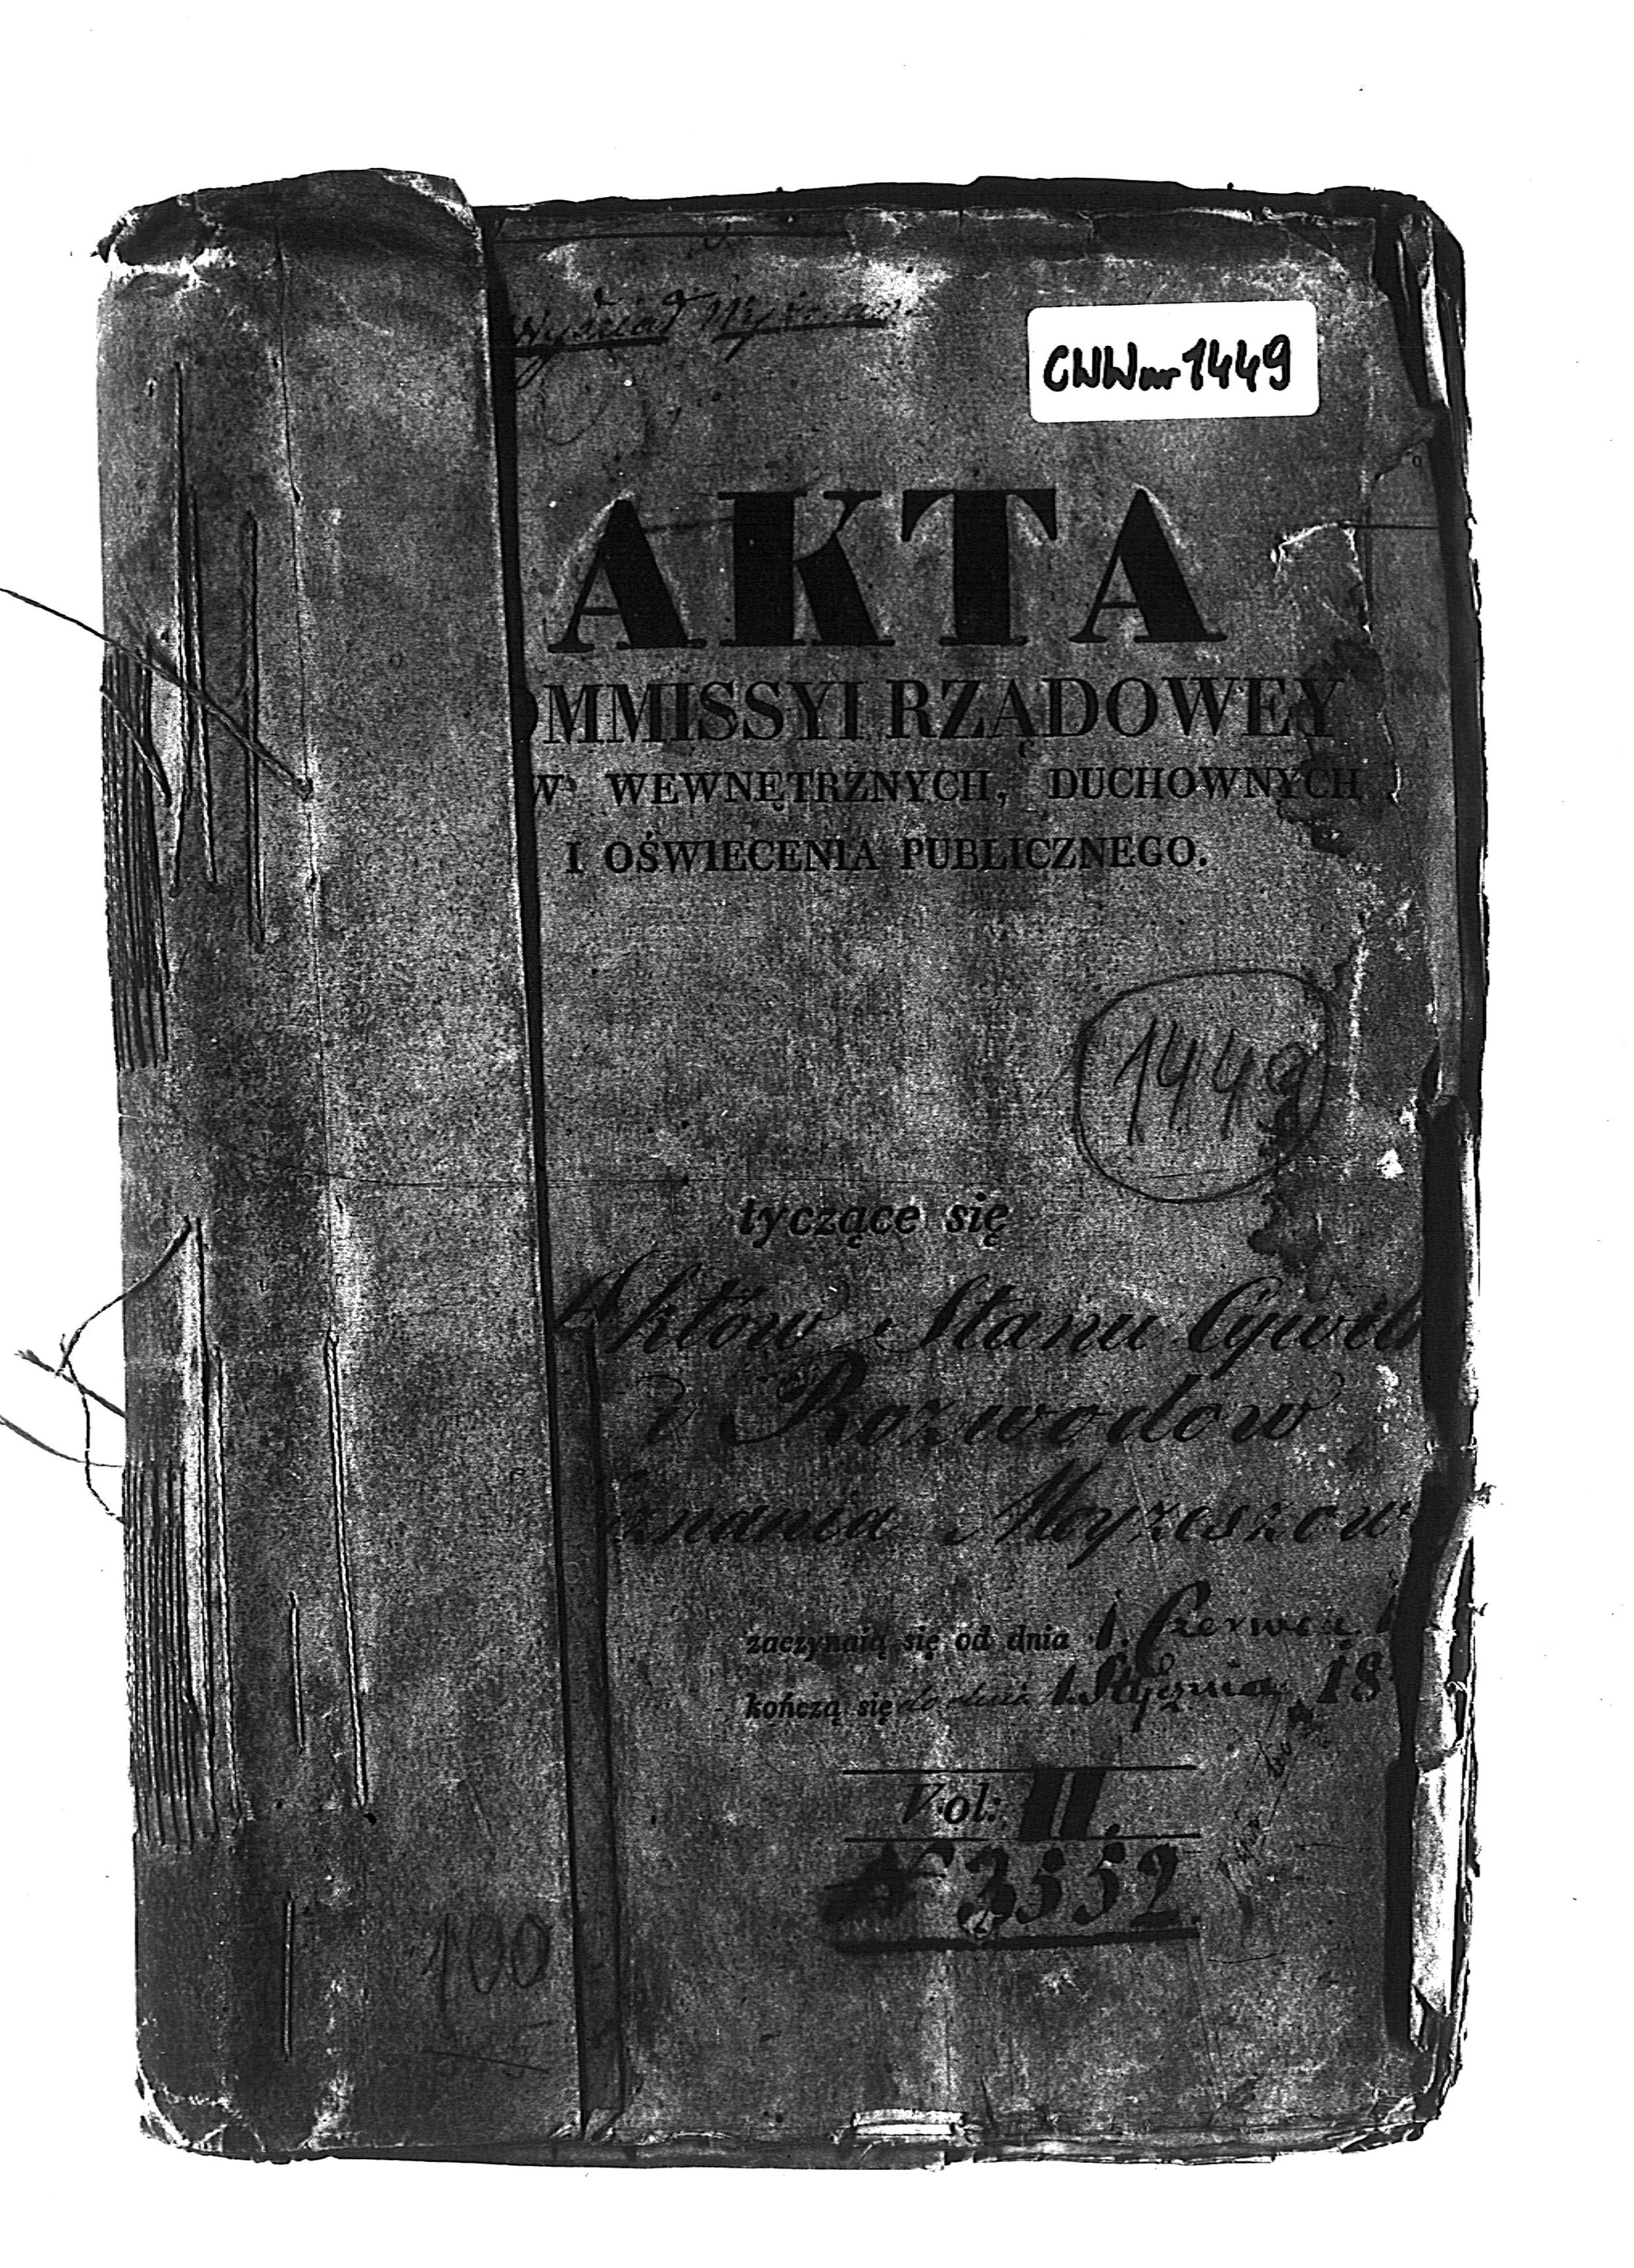 Wydział Wyznań
CWW nr 1449
AKTA
OMMISSYI RZĄDOWEY
W WEWNĘTRZNYCH, DUCHOWNYCH
I OŚWIECENIA PUBLICZNEGO.
1449
tyczące się
Aktów Stanu Cywil
i Rozwodów
znania Moyzeszow
zaczynaią się od dnia 1. Czerwca 1
kończą się do dnia 1. Stycznia 18
Vol: II.
N 3552
100